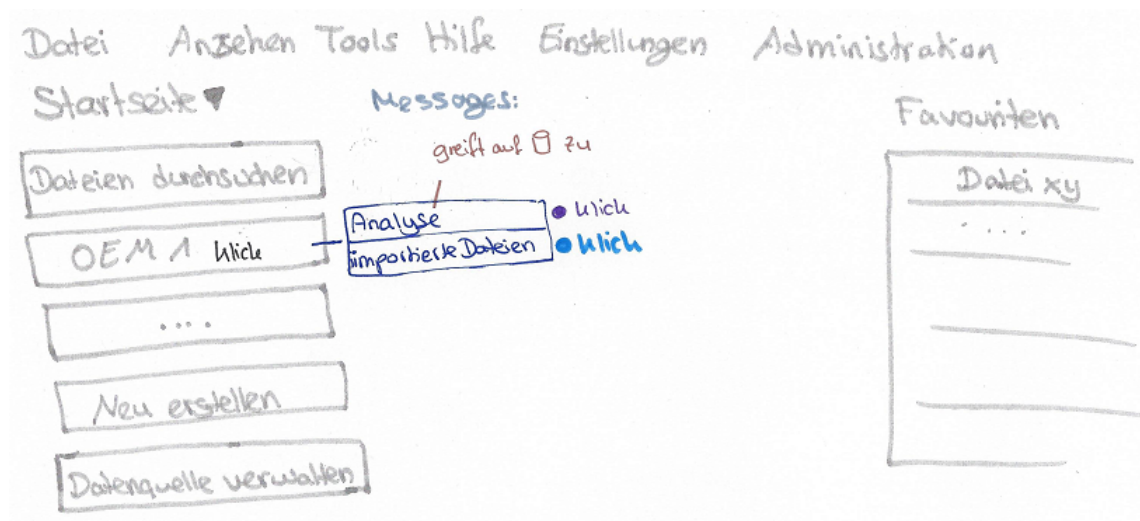 Datei Ansehen Tools Hilfe Einstellungen Administration
Startseite
Messages:
Favouriten
greift auf zu
Dateien durchsuchen
Datei xy
Analyse
klick
....
OEM 1 klick
importierte Dateien
klick
....
Neu erstellen
Datenquelle verwalten